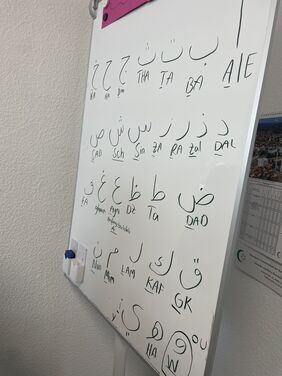 ا ب ت ث ج ح خ
A/E BA TA THA
د ذ ر ز س ش ص
DAL Zal RA ZA Sin Sch SAD
ض ط ظ ع غ ف
DAD Ta Dz FA
ق ك ل م ن
GK KAF LAM Mim Nun
و ه ي
W OU HA